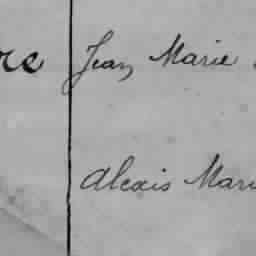 re Jean Marie
Alexis Mari